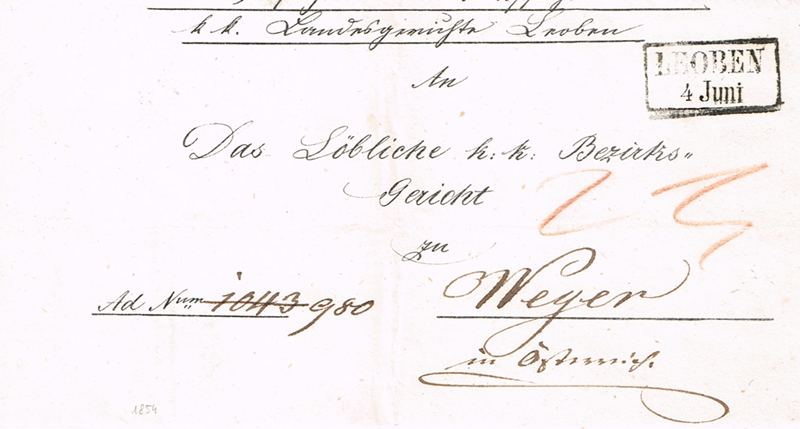 k k. Landesgerichte Leoben
LEOBEN
4 Juni
An
Das Löbliche k: k: Bezirks„
Gericht
zu
Weyer
Ad Num 1043 980
in Österreich.
1854